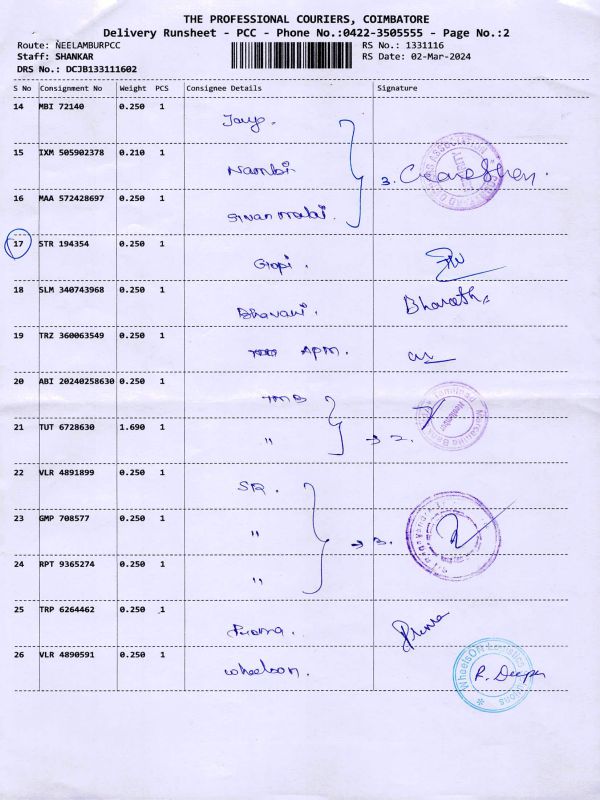 THE PROFESSIONAL COURIERS, COIMBATORE
Delivery Runsheet - PCC - Phone No.:0422-3505555 - Page No.:2
Route: NEELAMBURPCC
RS No.: 1331116
Staff: SHANKAR
RS Date: 02-Mar-2024
DRS No.: DCJB133111602
S No Consignment No Weight PCS Consignee Details Signature
14 MBI 72140 0.250 1
15 IXM 505902378 0.210 1 Nambi
3.
16 MAA 572428697 0.250 1
17 STR 194354 0.250 1 Gopi.
18 SLM 340743968 0.250 1 Bhavani. Bharath
19 TRZ 360063549 0.250 1 APM.
20 ABI 20240258630 0.250 1 TMB
21 TUT 6728630 1.690 1 " → 2.
22 VLR 4891899 0.250 1 SR.
23 GMP 708577 0.250 1 " → 3.
24 RPT 9365274 0.250 1 "
25 TRP 6264462 0.250 1
26 VLR 4890591 0.250 1 wheelson. R. Deepa